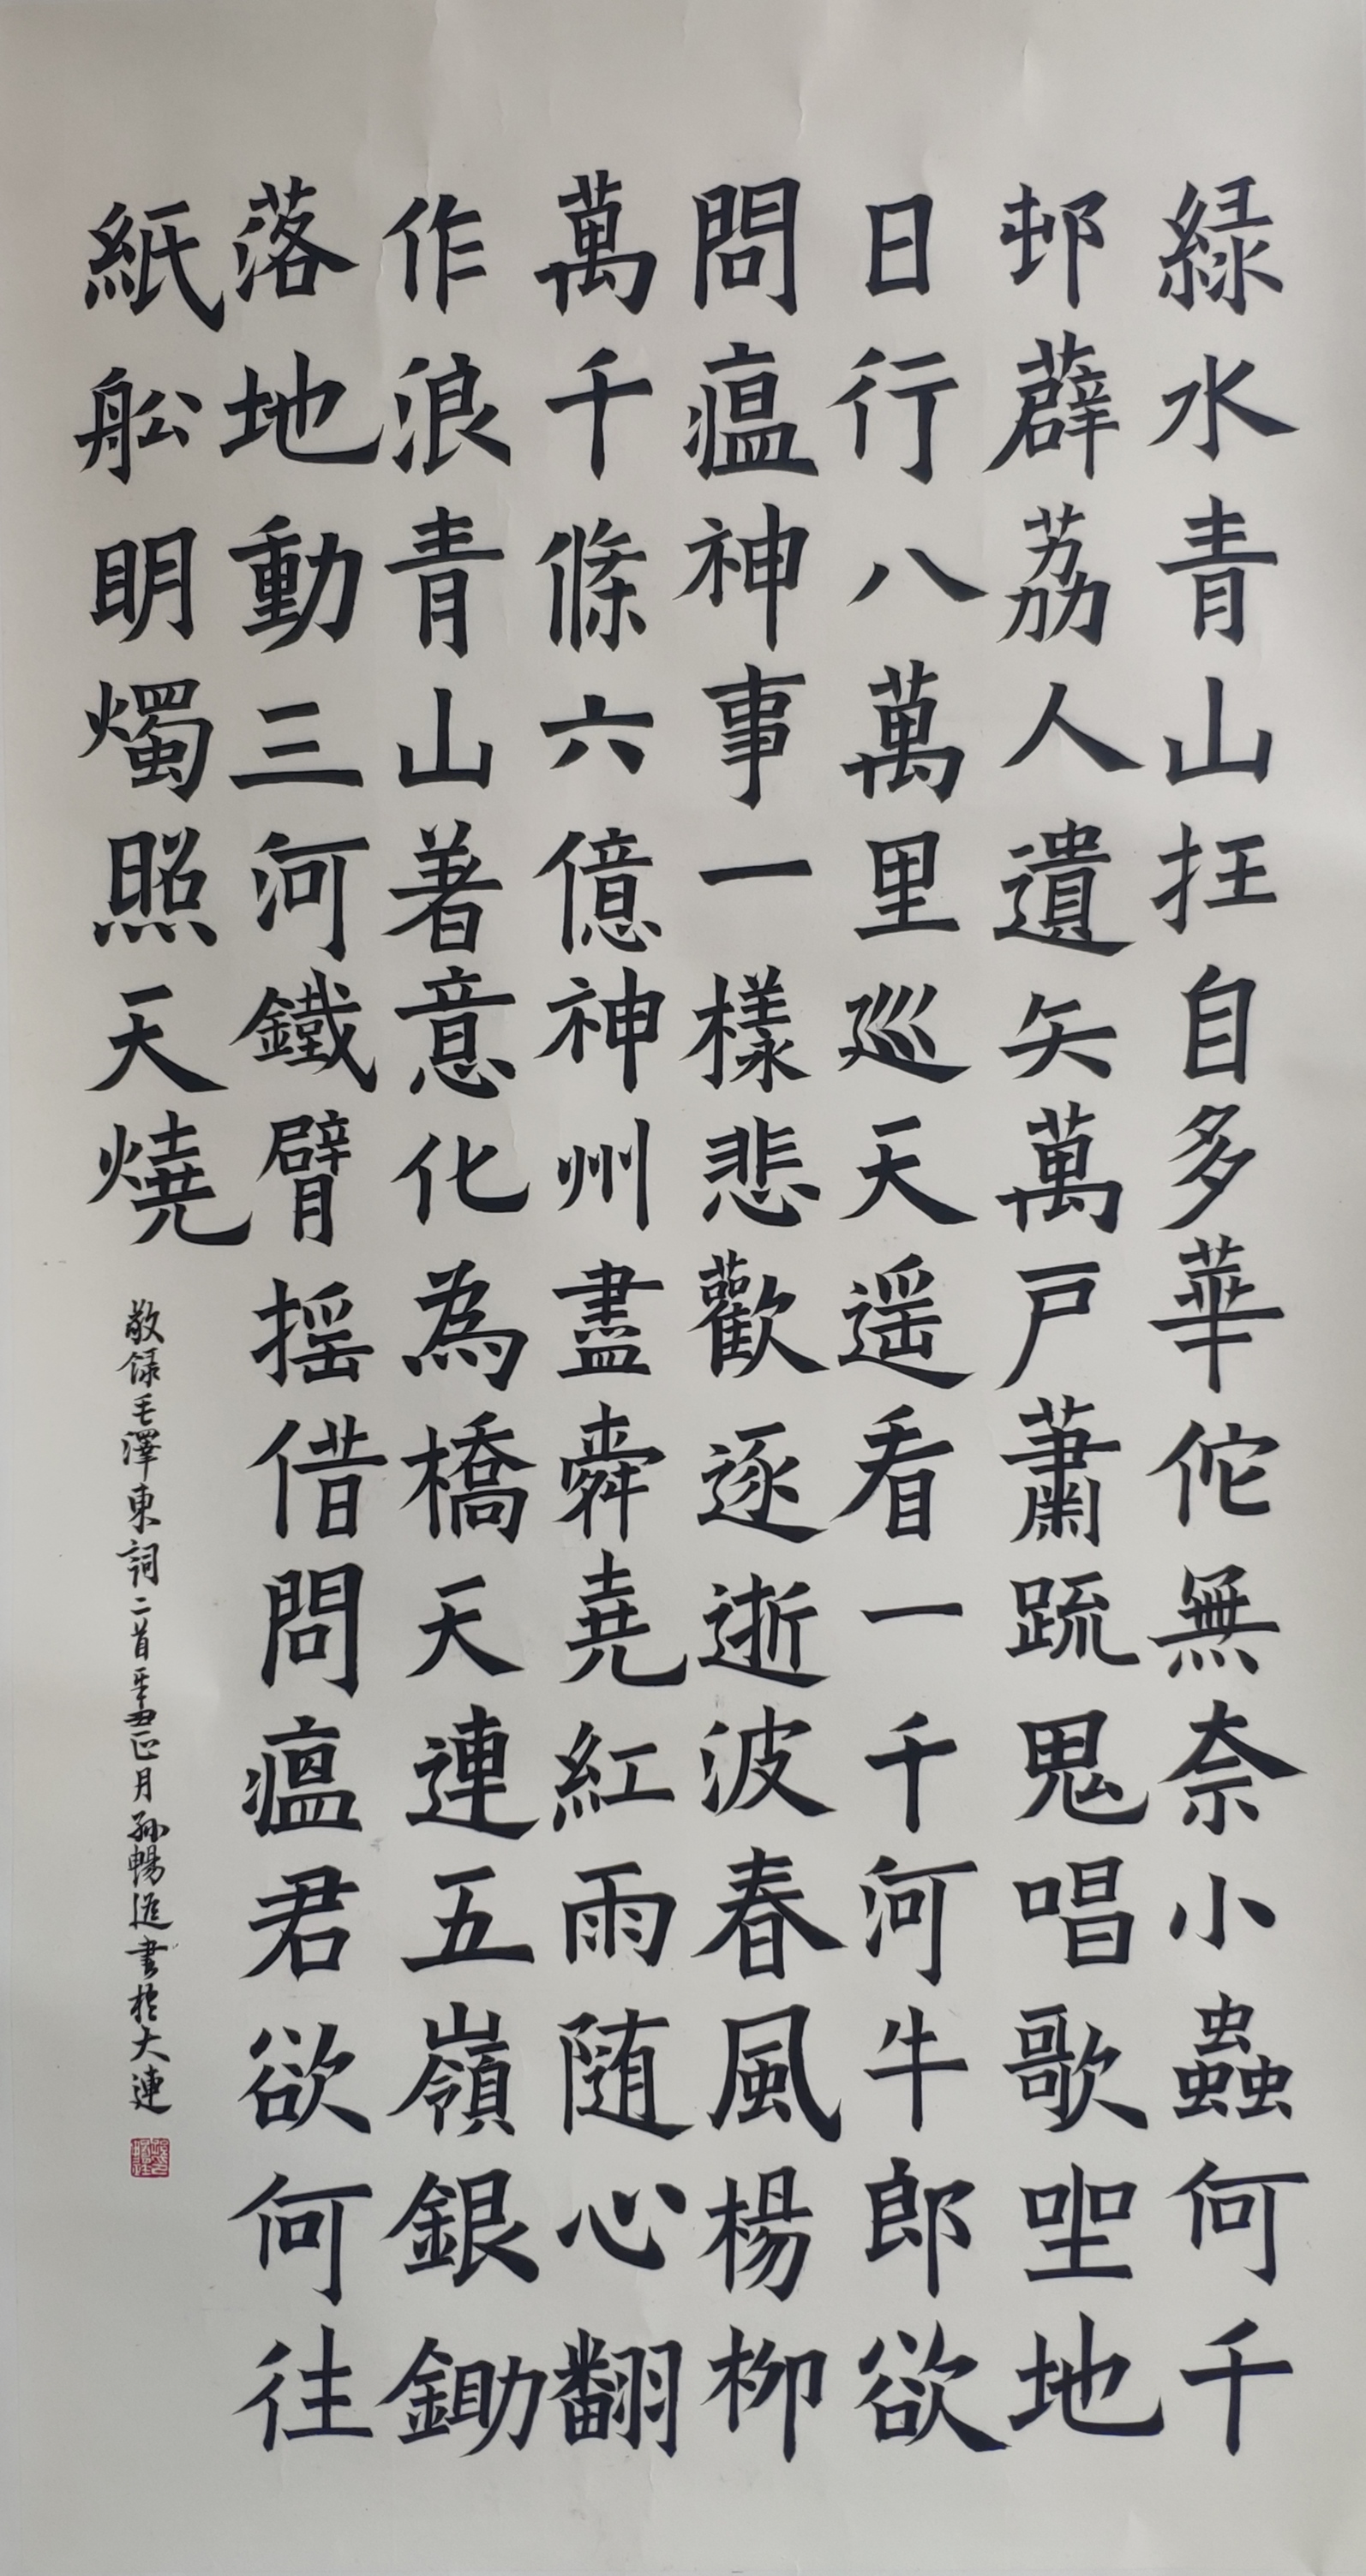 緑水青山抂自多華佗無奈小蟲何千
邨薜荔人遺矢萬戸蕭疏鬼唱歌坐地
日行八萬里巡天遥看一千河牛郎欲
問瘟神事一樣悲歡逐逝波春風楊柳
萬千條六億神州盡舜堯紅雨随心翻
作浪青山著意化為橋天連五嶺銀鋤
落地動三河鐵臂摇借問瘟君欲何往
紙船明燭照天燒
敬録毛澤東詞二首辛丑正月孫暢書於大連